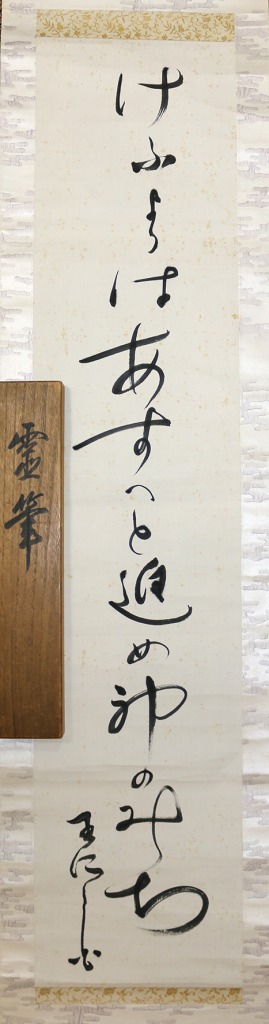 けふよりはあすへと進め神のみち
王仁
靈筆